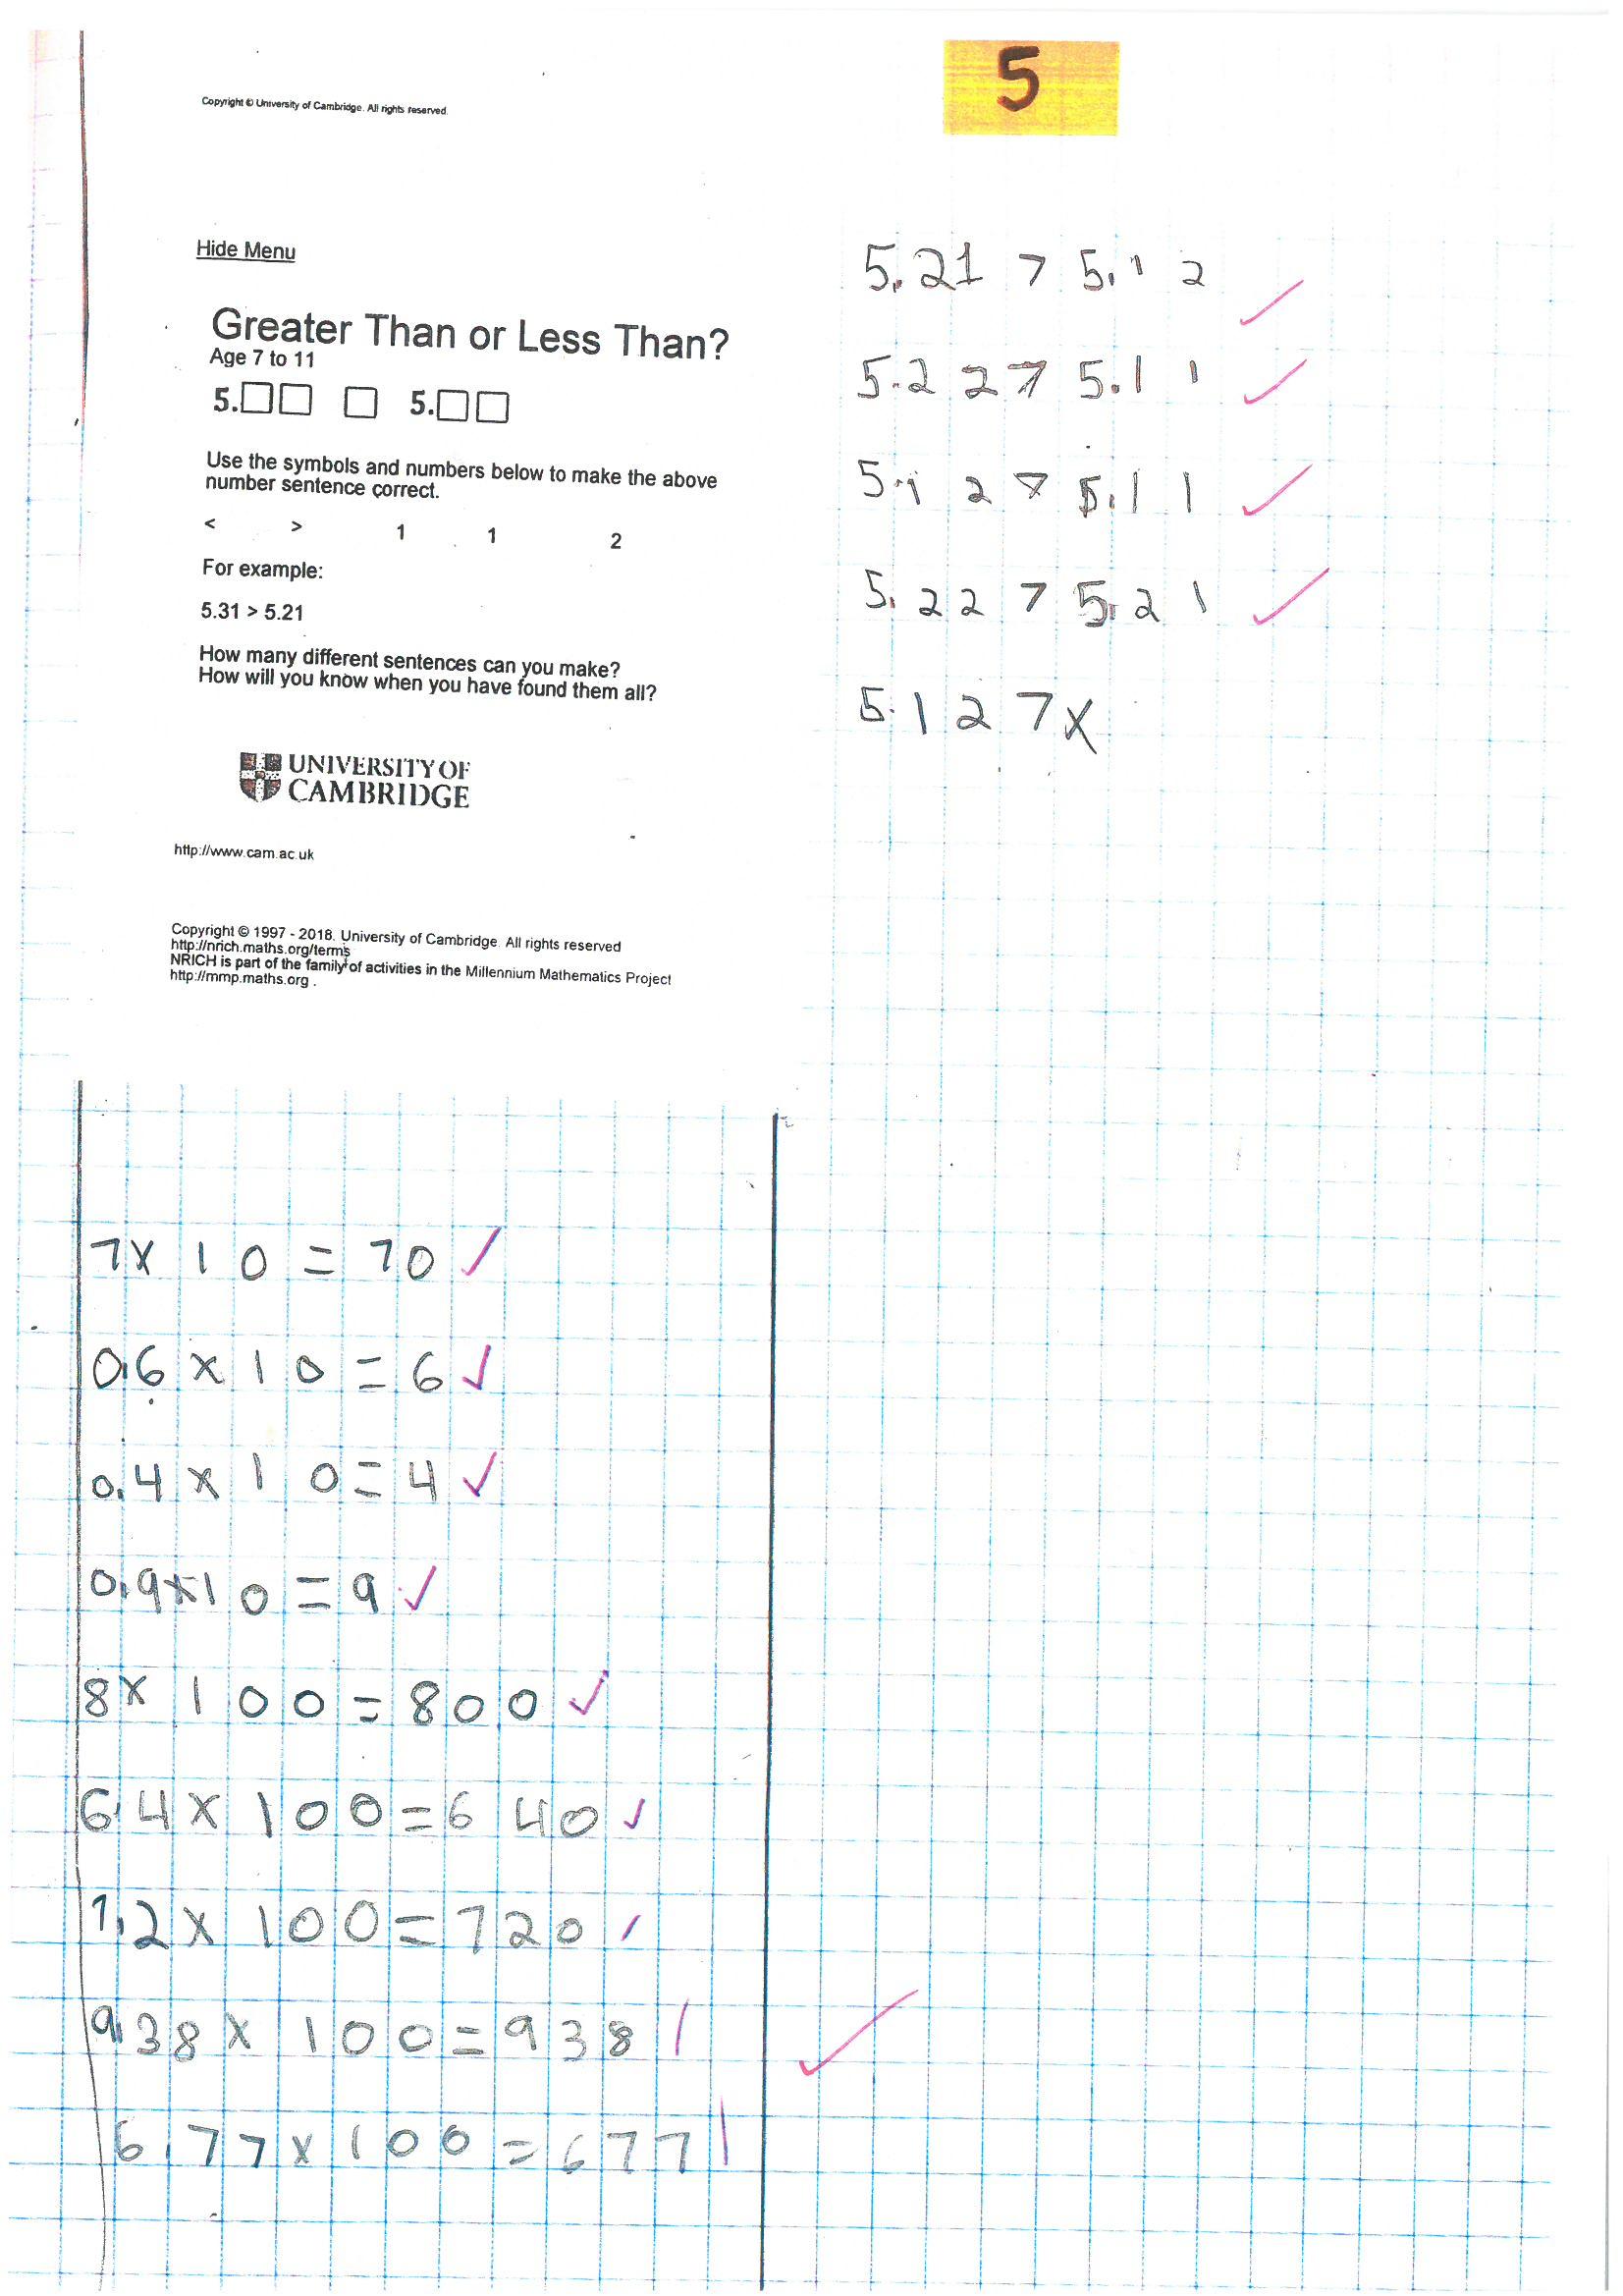 Copyright © University of Cambridge. All rights reserved.
5
Hide Menu
Greater Than or Less Than?
Age 7 to 11
5.□□ □ 5.□□
Use the symbols and numbers below to make the above
number sentence correct.
< > 1 1 2
For example:
5.31 > 5.21
How many different sentences can you make?
How will you know when you have found them all?
UNIVERSITY OF
CAMBRIDGE
http://www.cam.ac.uk
Copyright © 1997 - 2018. University of Cambridge. All rights reserved
http://nrich.maths.org/terms
NRICH is part of the family of activities in the Millennium Mathematics Project
http://mmp.maths.org.
5.21 > 5.12 ✓
5.22 > 5.11 ✓
5.12 > 5.11 ✓
5.22 > 5.21 ✓
5.12 > x
7 x 10 = 70 ✓
0.6 x 10 = 6 ✓
0.4 x 10 = 4 ✓
0.9 x 10 = 9 ✓
8 x 100 = 800 ✓
6.4 x 100 = 640 ✓
7.2 x 100 = 720 /
9.38 x 100 = 938 / ✓
6.77 x 100 = 677 /